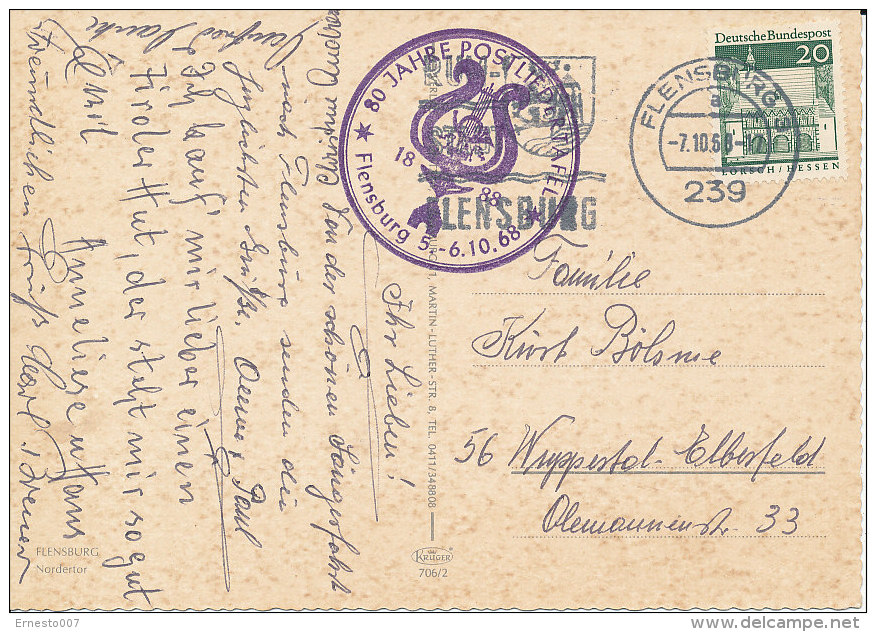 Deutsche Bundespost
20
LORSCH/HESSEN
FLENSBURG
a
-7.10.68-17
239
80 JAHRE POSTLIEDERTAFEL
18 88
Flensburg 5.-6.10.68
FLENSBURG
MARTIN-LUTHER-STR. 8, TEL. 0411/348808
Familie
Kurt Bölsme
56 Wuppertal-Elberfeld
Alemannenstr. 33
Ihr Lieben!
Von der schönen Sängerfahrt
nach Flensburg senden die
herzlichsten Grüße, Paul
Ich kauf' mir lieber einen
Tiroler Hut, der steht mir so gut
Anneliese u Hans
Freundlichen Gruß Karl
FLENSBURG
Nordertor
KRÜGER
706/2
Ernesto007
delcampe.net